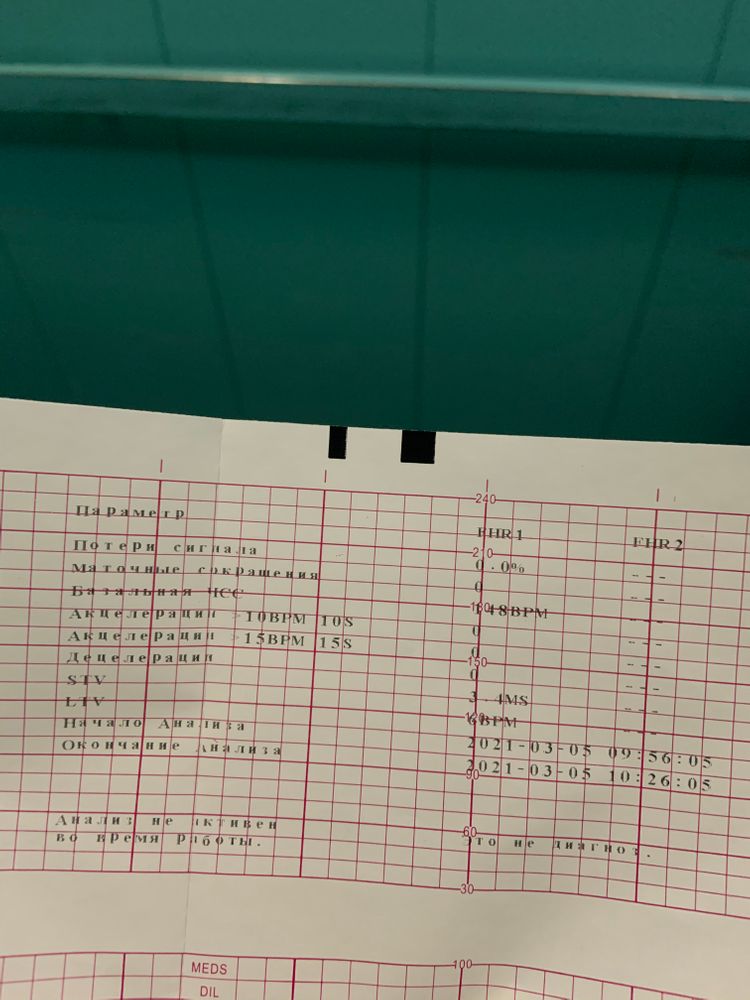 240
Параметр FHR1 FHR2
Потери сигнала 0.0% ---
210
Маточные сокращения 0
Базальная ЧСС 148BPM ---
180
Акцелерации >10BPM 10S 0 ---
Акцелерации >15BPM 15S 0 ---
150
Децелерации 0 ---
STV 3.4MS ---
LTV 6BPM ---
120
Начало Анализа 2021-03-05 09:56:05
Окончание Анализа 2021-03-05 10:26:05
90
Анализ не активен
во время работы. Это не диагноз.
60
30
MEDS 100
DIL